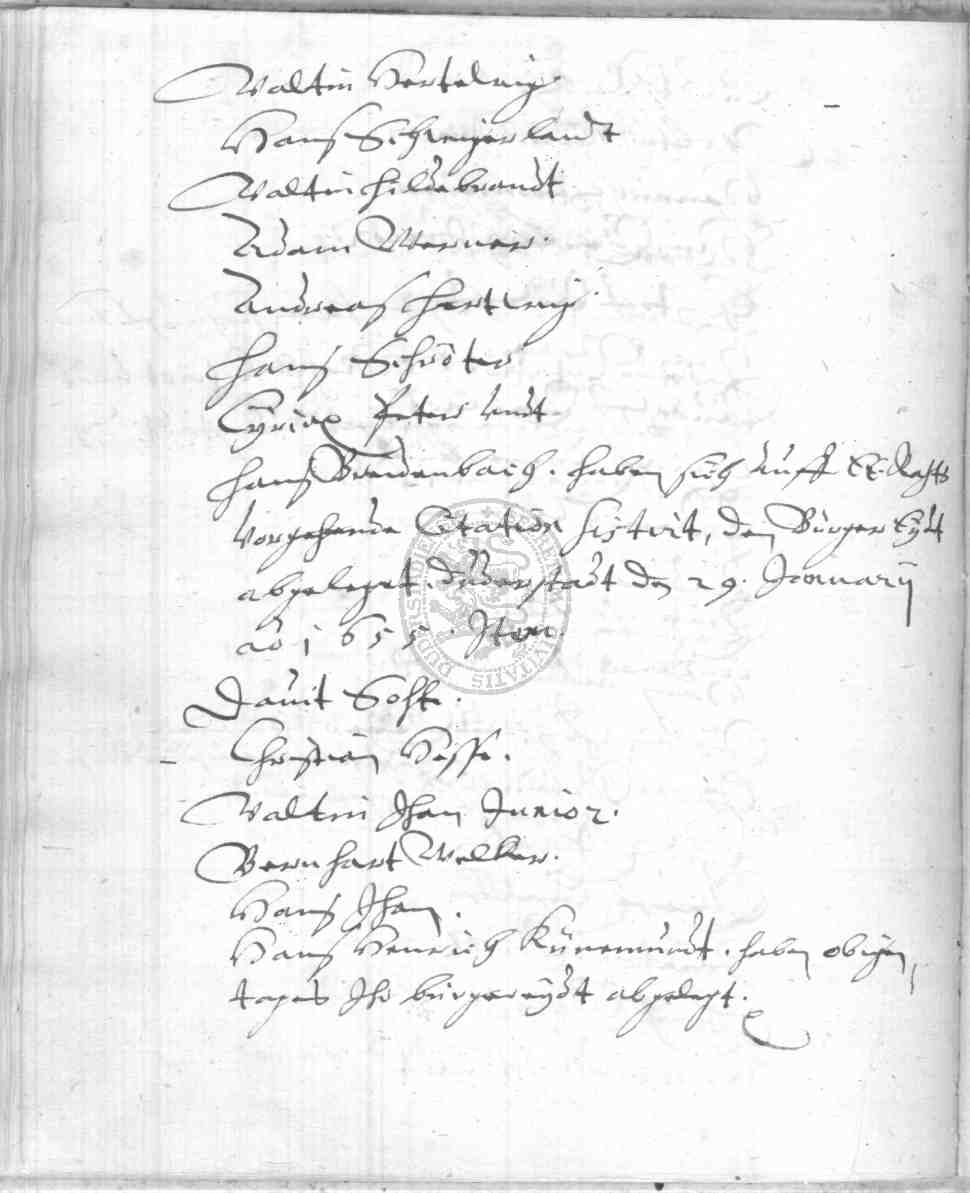 Valtin Hertelwig
Hans Schweigerlandt
Valtin Hildebrandt
Adam Werner.
Andreas Hertwig.
Hans Schröter
Cyriax Peter undt
Hans Breidenbach. haben sich auff EE. Rahts
vorgehende Citation sistirt, den Bürger Eydt
abgeleget. Duderstadt den 29. January
ao 1655. Item.
Davit Solft.
Christian Hesse.
Valtin Jhan Junior.
Bernhart Welker.
Hans Jhan.
Hans Henrich Künemundt. haben obigen
tages Ihr bürgereydt abgelegt.